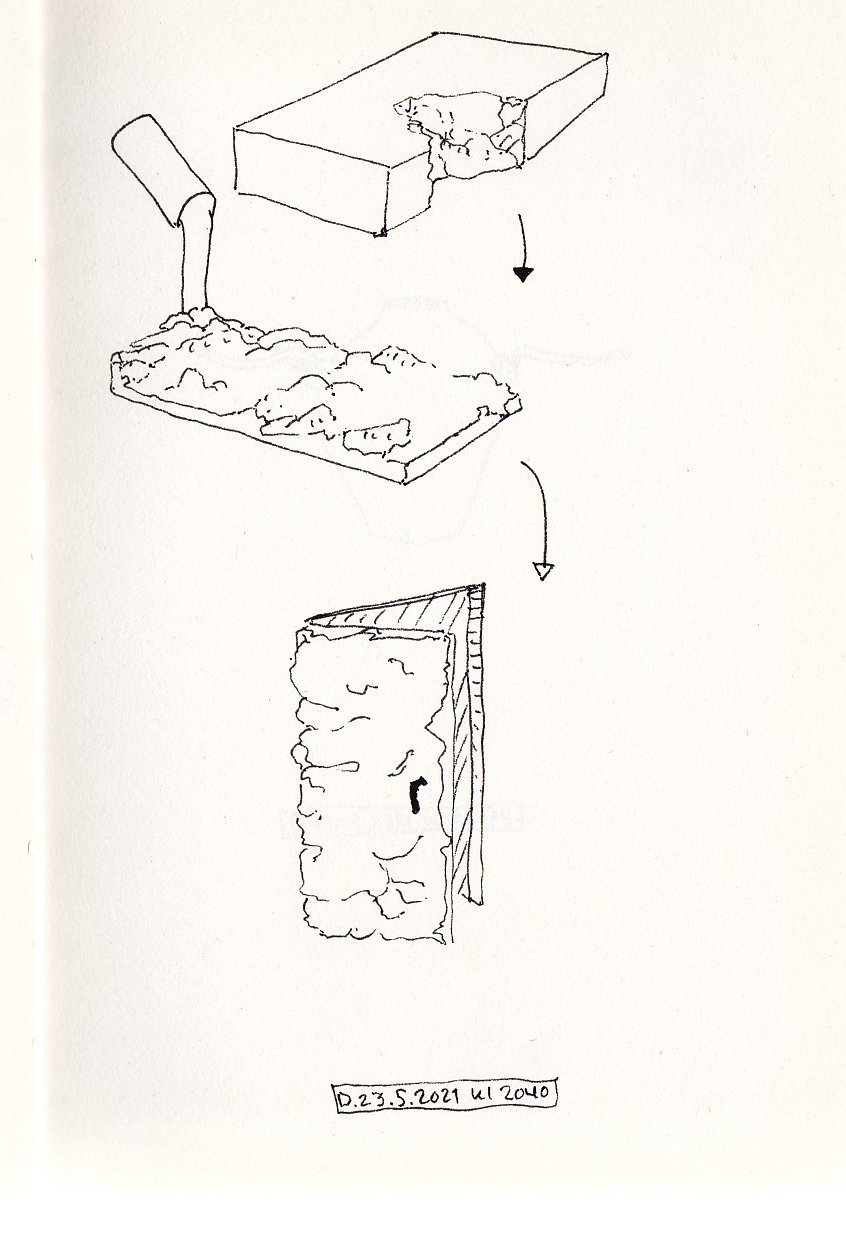 D.23.5.2021 kl 2040